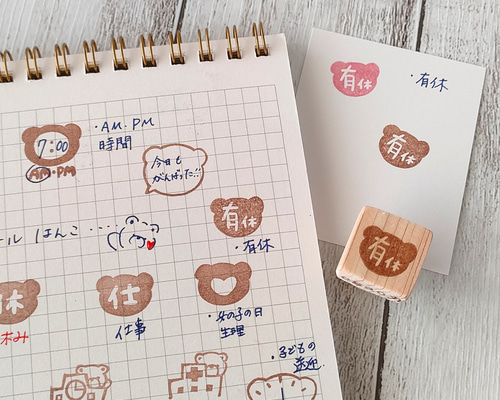 7:00
AM・PM
・AM．PM
時間
今日も
がんばった!!
ール はんこ・・・・・
有休
・有休
休
休み
仕
仕事
・女の子の日
生理
・子どもの
送迎
有休
・有休
有休
有休